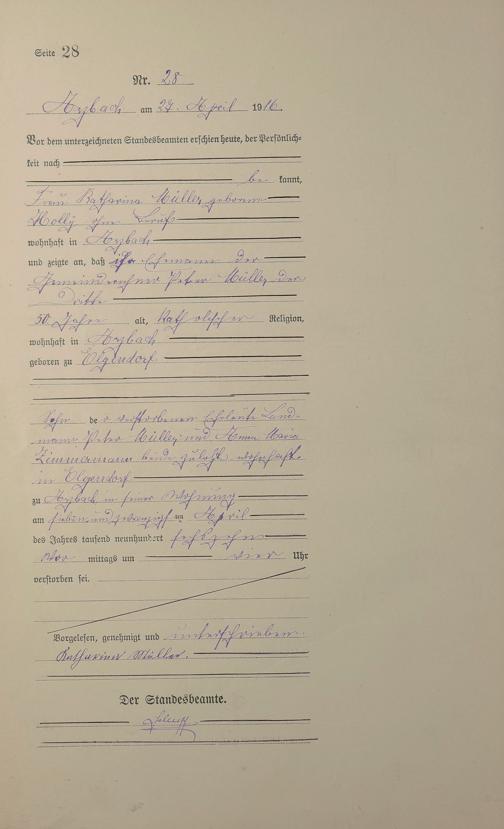 Seite 28
Nr. 28
Arzbach am 27. April 1916.
Vor dem unterzeichneten Standesbeamten erschien heute, der Persönlich-
keit nach
be kannt,
Frau Katharina Müller geborene
Holly ohne Beruf
wohnhaft in Arzbach
und zeigte an, daß ihr Ehemann der
Gemeinderechner Peter Müller der
Dritte
50 Jahre alt, katholischer Religion,
wohnhaft in Arzbach
geboren zu Elgendorf
Sohn der verstorbenen Eheleute Land-
mann Peter Müller und Anna Maria
Zimmermann beide zuletzt wohnhaft
in Elgendorf
zu Arzbach in seiner Wohnung
am sieben und zwanzigsten April
des Jahres tausend neunhundert sechszehn
Vor mittags um vier Uhr
verstorben sei.
Vorgelesen, genehmigt und unterschrieben
Katharina Müller.
Der Standesbeamte.